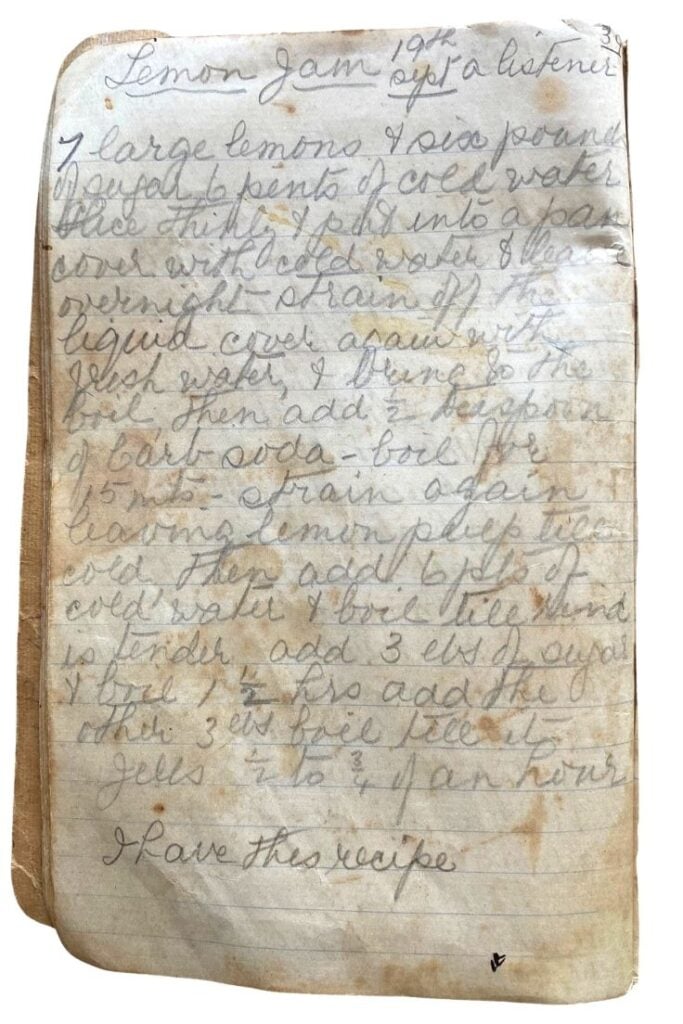 39
Lemon Jam 19th sept a listener
7 large lemons & six pound
of sugar 6 pents of cold water
Slice thinly & put into a pan
cover with cold water & leave
overnight strain off the
liquid cover again with
fresh water, & bring to the
boil then add ½ teaspoon
of Carb soda - boil for
15 mts - strain again
leaving lemon pulp till
cold then add 6 pts of
cold water & boil till rind
is tender add 3 lbs of sugar
& boil 1 ½ hrs add the
other 3 lbs boil till it
Jells ½ to ¾ of an hour
I have this recipe